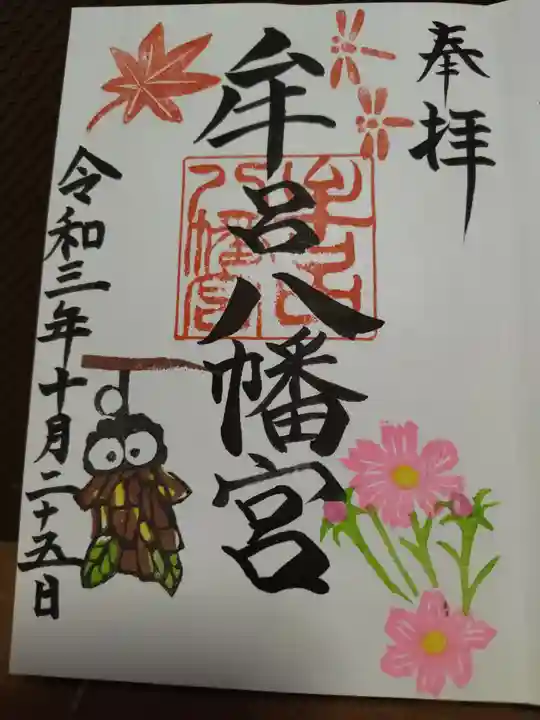 奉拝
牟呂八幡宮
牟呂
八幡宮
令和三年十月二十五日